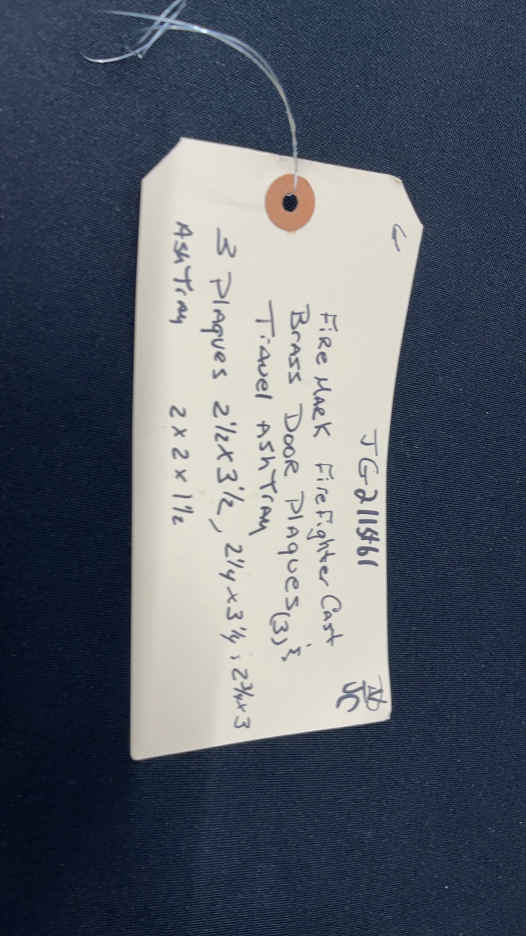 JG211461
Fire Mark Firefighter Cast
Brass Door Plaques (3) &
Travel Ashtray
3 Plaques 2 1/2 x 3 1/2, 2 1/4 x 3 1/4; 2 3/4 x 3
Ashtray 2 x 2 x 1 1/2